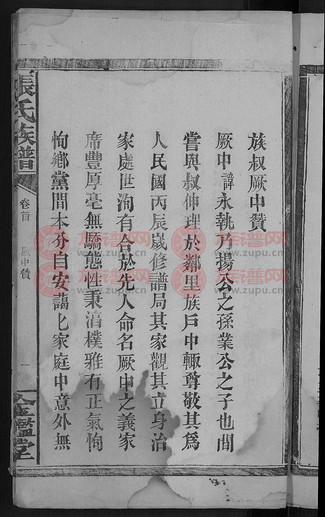 族叔厥中贊
厥中諱永執乃揚公之孫業公之子也間
嘗與叔伸理於鄰里族戶中輒尊敬其為
人民國丙辰歲修譜局其家觀其立身治
家處世洵有合於先人命名厥中之義家
席豐厚毫無驕態性秉渾樸雅有正氣恂
恂鄉黨間本分自安藹化家庭中意外無
張氏族譜
卷首
厥中贊
一
金鑑堂
族譜网
www.zupu.cn